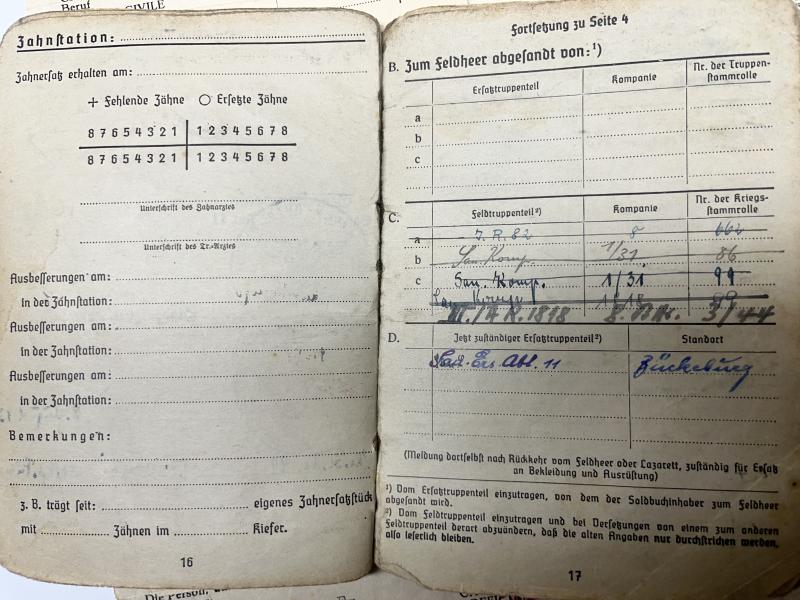 Beruf
CIVILE
Zahnstation:
Zahnersatz erhalten am:
+ Fehlende Zähne ○ Ersetzte Zähne
8 7 6 5 4 3 2 1 | 1 2 3 4 5 6 7 8
8 7 6 5 4 3 2 1 | 1 2 3 4 5 6 7 8
Unterschrift des Zahnarztes
Unterschrift des Tr.-Arztes
Ausbesserungen am:
in der Zahnstation:
Ausbesserungen am:
in der Zahnstation:
Ausbesserungen am:
in der Zahnstation:
Bemerkungen:
z. B. trägt seit: eigenes Zahnersatzstück
mit Zähnen im Kiefer.
16
Fortsetzung zu Seite 4
B. Zum Feldheer abgesandt von:¹)
Ersatztruppenteil Kompanie Nr. der Truppenstammrolle
a
b
c
C. Feldtruppenteil²) Kompanie Nr. der Kriegsstammrolle
a J. R. 82 8 662
b San. Komp. 1/31 86
c San. Komp. 1/31. 99
San. Komp
III./A.R. 1818 8. 3/44
D. Jetzt zuständiger Ersatztruppenteil²) Standort
San. Ers. Abt. 11 Bückeburg
(Meldung dortselbst nach Rückkehr vom Feldheer oder Lazarett, zuständig für Ersatz
an Bekleidung und Ausrüstung)
¹) Vom Ersatztruppenteil einzutragen, von dem der Soldbuchinhaber zum Feldheer
abgesandt wird.
²) Vom Feldtruppenteil einzutragen und bei Versetzungen von einem zum anderen
Feldtruppenteil derart abzuändern, daß die alten Angaben nur durchstrichen werden,
also leserlich bleiben.
17